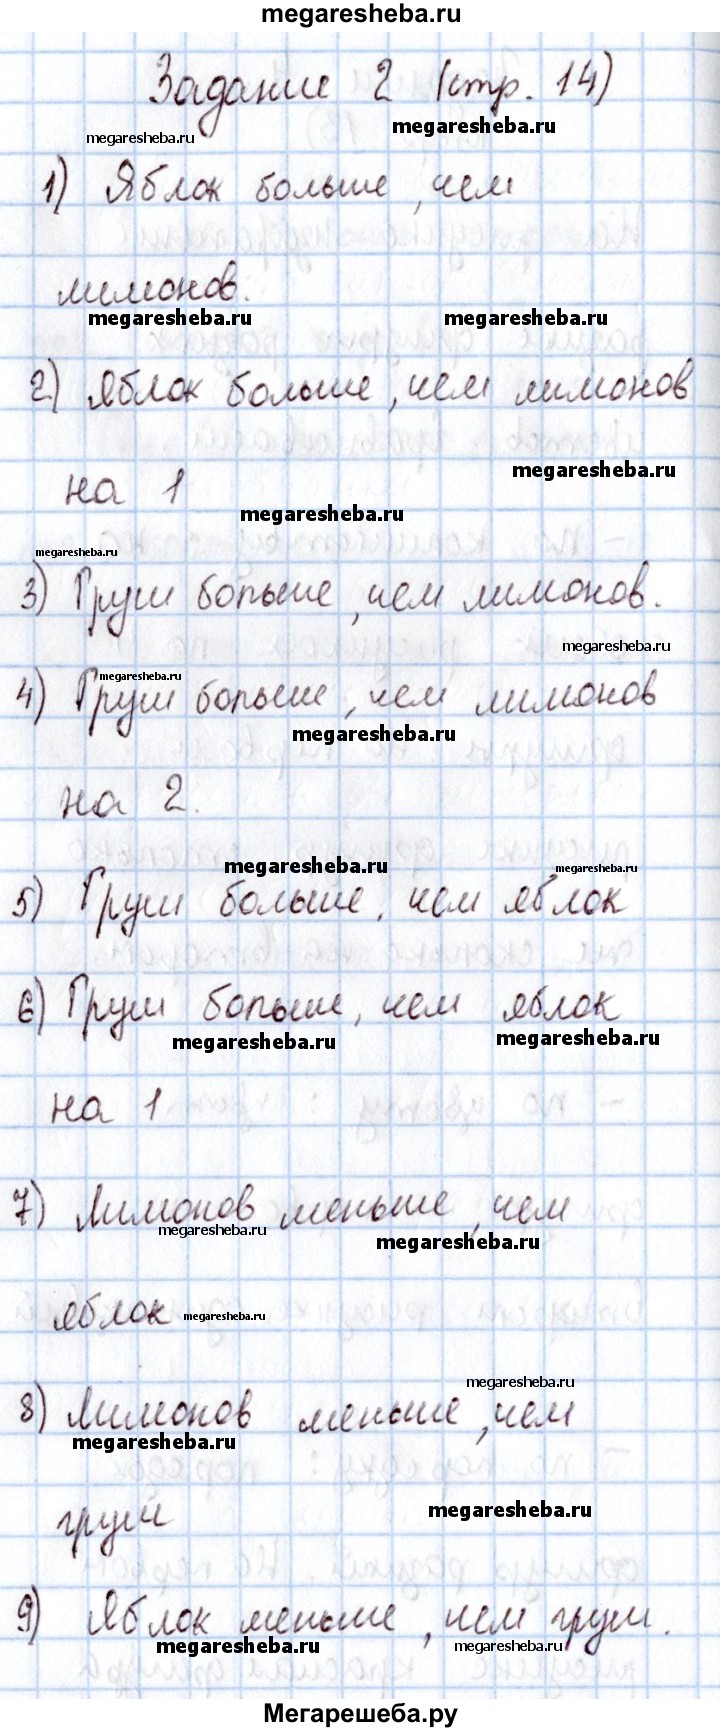 megaresheba.ru
Задание 2 (стр. 14)
megaresheba.ru megaresheba.ru
1) Яблок больше, чем
лимонов.
megaresheba.ru megaresheba.ru
2) Яблок больше, чем лимонов
megaresheba.ru
на 1
megaresheba.ru
megaresheba.ru
3) Груш больше, чем лимонов.
megaresheba.ru
megaresheba.ru
4) Груш больше, чем лимонов
megaresheba.ru
на 2.
megaresheba.ru megaresheba.ru
5) Груш больше, чем яблок
6) Груш больше, чем яблок
megaresheba.ru megaresheba.ru
на 1
7) Лимонов меньше, чем
megaresheba.ru megaresheba.ru
яблок megaresheba.ru
megaresheba.ru
8) Лимонов меньше, чем
megaresheba.ru
груш megaresheba.ru
9) Яблок меньше, чем груш.
megaresheba.ru megaresheba.ru
Мегарешеба.ру